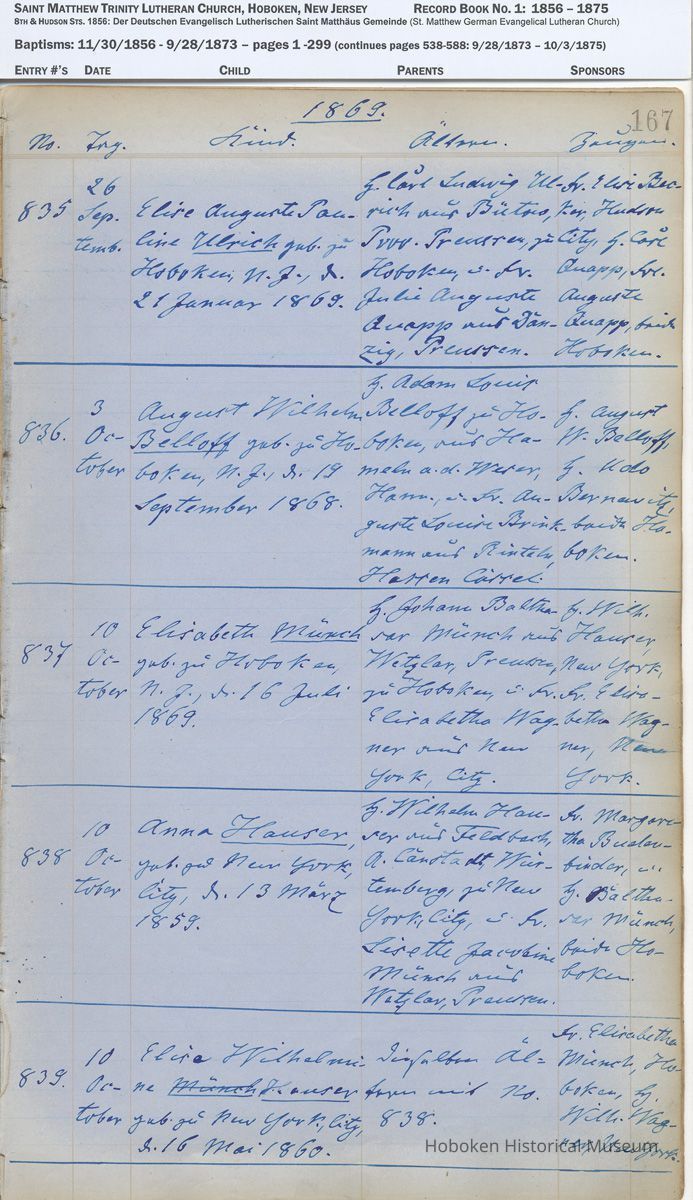 SAINT MATTHEW TRINITY LUTHERAN CHURCH, HOBOKEN, NEW JERSEY RECORD BOOK NO. 1: 1856 – 1875
8TH & HUDSON STS. 1856: Der Deutschen Evangelisch Lutherischen Saint Matthäus Gemeinde (St. Matthew German Evangelical Lutheran Church)
Baptisms: 11/30/1856 - 9/28/1873 – pages 1 -299 (continues pages 538-588: 9/28/1873 – 10/3/1875)
ENTRY #'S DATE CHILD PARENTS SPONSORS
1869.
167
No. Tag. Kind. Ältern. Zeugen.
835
26
Sep-
temb.
Elise Auguste Pau-
line Ulrich geb. zu
Hoboken, N. J., d.
21 Januar 1869.
H. Carl Ludwig Ul-
rich aus Bütow,
Prov. Preussen, zu
Hoboken, u. Fr.
Julie Auguste
Quapp aus Dan-
zig, Preussen.
Fr. Elise Bec-
ker, Hudson
City, H. Carl
Quapp, Fr.
Auguste
Quapp, beide
Hoboken.
836.
3
Oc-
tober
August Wilhelm
Belloff geb. zu Ho-
boken, N. J., d. 19
September 1868.
H. Adam Louis
Belloff zu Ho-
boken, aus Ha-
meln a. d. Weser,
Hann., u. Fr. Au-
guste Louise Brink-
mann aus Rinteln,
Hessen Cassel.
H. August
W. Belloff,
H. Udo
Bernewitz,
beide Ho-
boken.
837
10
Oc-
tober
Elisabeth Münch
geb. zu Hoboken,
N. J., d. 16 Juli
1869.
H. Johann Baltha-
sar Münch aus
Wetzlar, Preussen,
zu Hoboken, u. Fr.
Elisabetha Wag-
ner aus New
York, City.
H. Wilh.
Hauser,
New York,
Fr. Elisa-
betha Wag-
ner, New
York.
838
10
Oc-
tober
Anna Hauser,
geb. zu New York,
City, d. 13 März
1859.
H. Wilhelm Hau-
ser aus Feldbach,
A. Canstadt, Wür-
temberg, zu New
York, City, u. Fr.
Lisette Jacobine
Münch aus
Wetzlar, Preussen.
Fr. Margare-
tha Buslen-
binder, u.
H. Baltha-
sar Münch,
beide Ho-
boken.
839.
10
Oc-
tober
Elise Wilhelmi-
ne Münch Hauser
geb. zu New York, City,
d. 16 Mai 1860.
Dieselben Äl-
tern mit No.
838.
Fr. Elisabetha
Münch, Ho-
boken, H.
Wilh. Wag-
ner, New York.
Hoboken Historical Museum